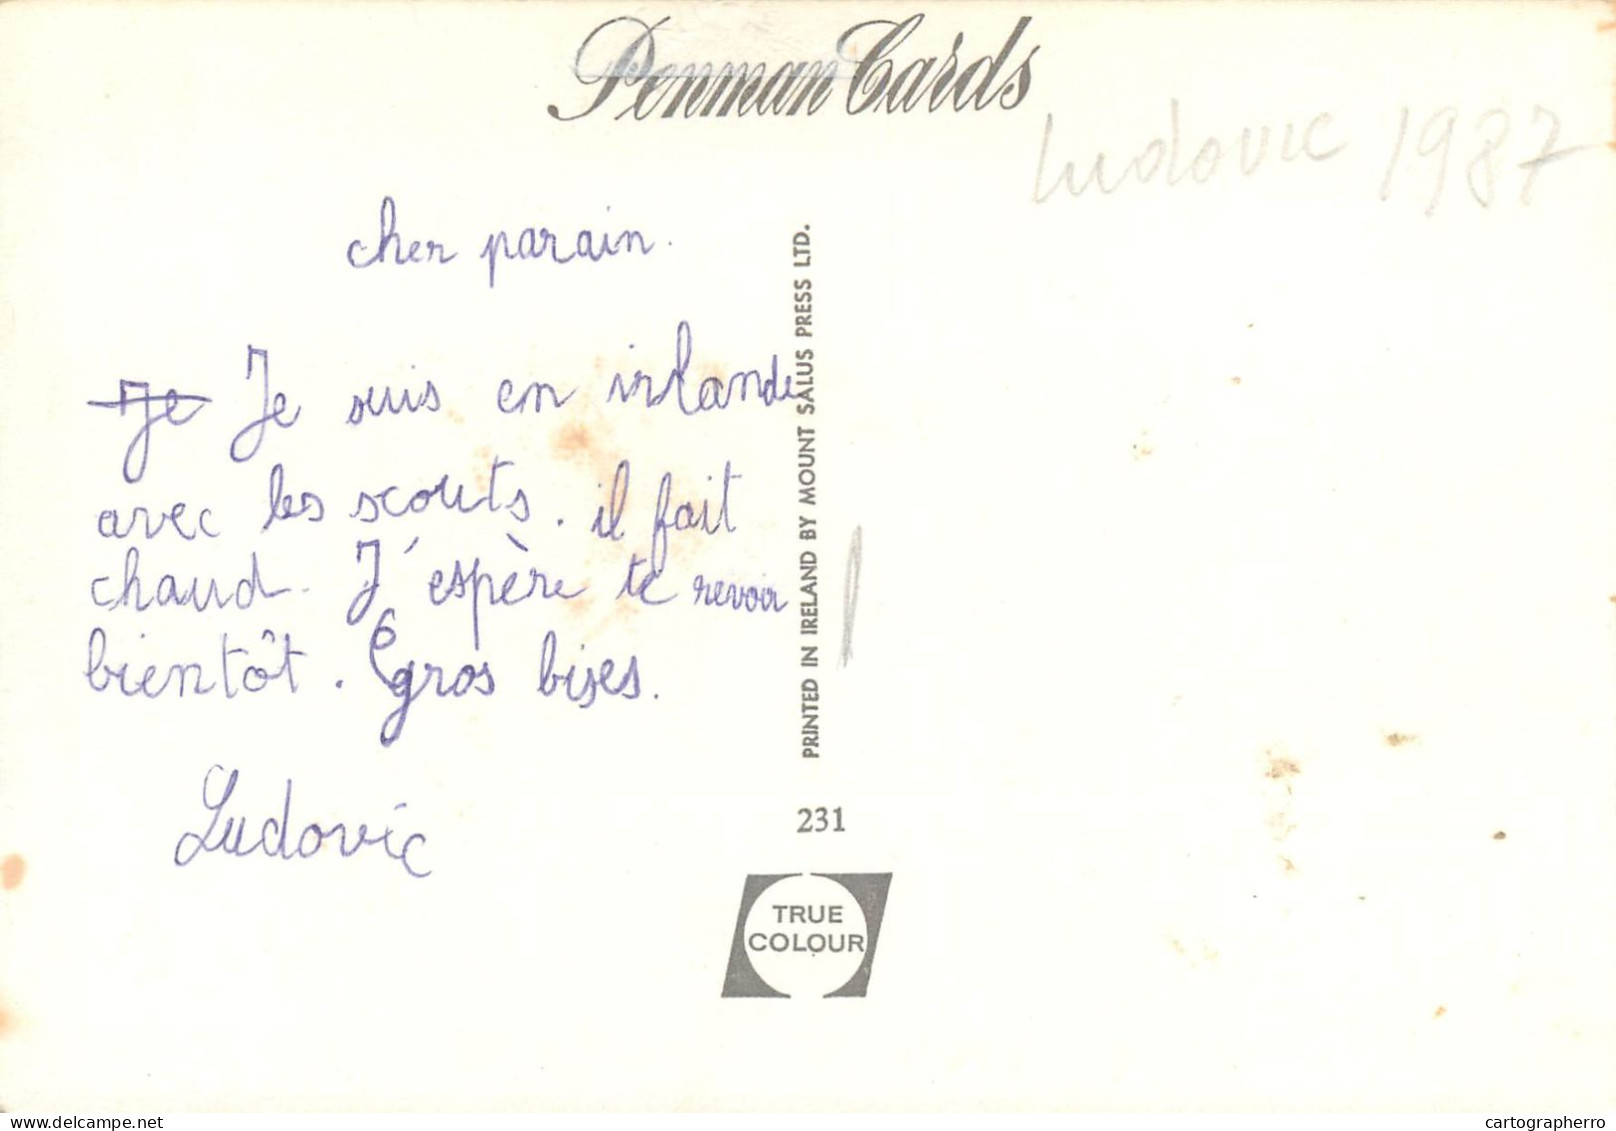 Penman Cards
Ludovic 1987
cher parain.
Je Je suis en irlande
avec les scouts. il fait
chaud. J'espère te revoir
bientôt. gros bises.
Ludovic
PRINTED IN IRELAND BY MOUNT SALUS PRESS LTD.
231
TRUE
COLOUR
cartographerro